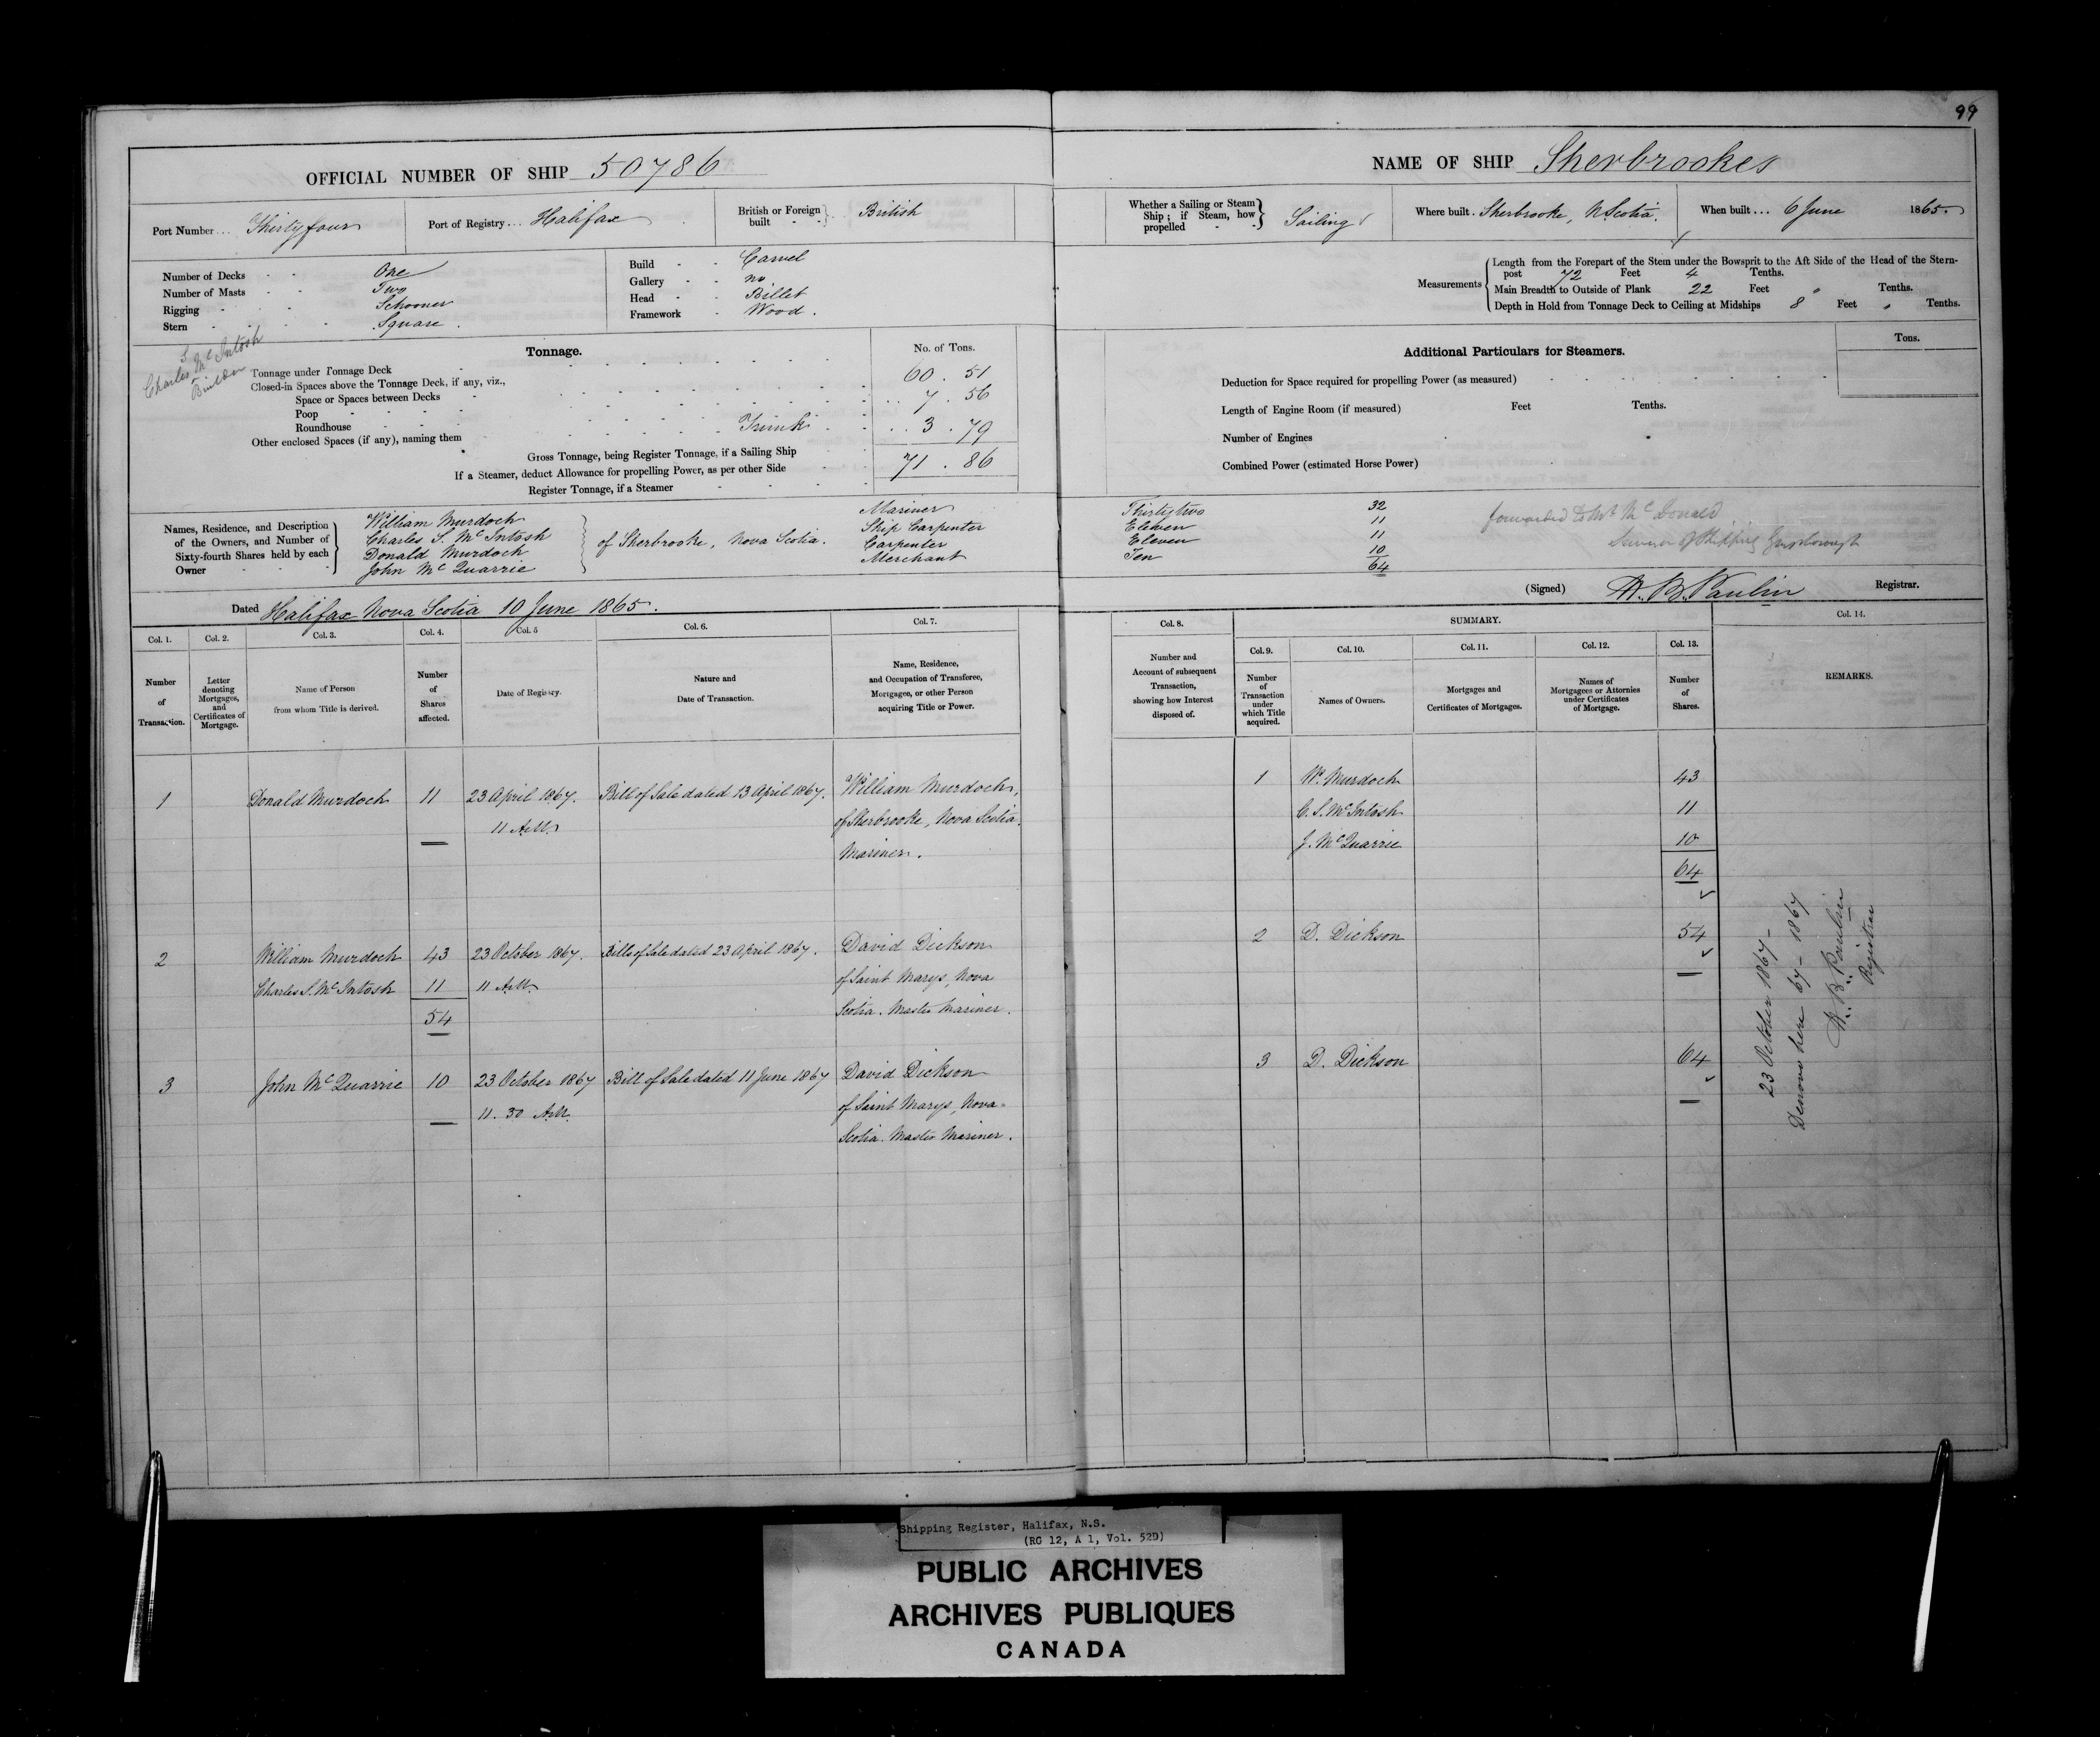 99
OFFICIAL NUMBER OF SHIP 50786
Port Number... Thirtyfour
Port of Registry... Halifax
British or Foreign built - - British
Number of Decks - - One
Number of Masts - - Two
Rigging - - - Schooner
Stern - - - - Square.
Build - - Carvel
Gallery - - no
Head - - Billet
Framework - Wood.
Charles S McIntosh
Builder
Tonnage.
No. of Tons.
Tonnage under Tonnage Deck - 60.51
Closed-in Spaces above the Tonnage Deck, if any, viz.,
Space or Spaces between Decks - .. 7.56
Poop - - - -
Roundhouse - - - Trunk - .. 3.79
Other enclosed Spaces (if any), naming them
Gross Tonnage, being Register Tonnage, if a Sailing Ship 71.86
If a Steamer, deduct Allowance for propelling Power, as per other Side
Register Tonnage, if a Steamer
Names, Residence, and Description of the Owners, and Number of Sixty-fourth Shares held by each Owner
William Murdoch Mariner
Charles S. McIntosh of Sherbrooke, Nova Scotia. Ship Carpenter
Donald Murdoch Carpenter
John McQuarrie Merchant
Dated Halifax Nova Scotia 10 June 1865.
Col. 1. Col. 2. Col. 3. Col. 4. Col. 5 Col. 6. Col. 7.
Number of Transaction.
Letter denoting Mortgages, and Certificates of Mortgage.
Name of Person from whom Title is derived.
Number of Shares affected.
Date of Registry.
Nature and Date of Transaction.
Name, Residence, and Occupation of Transferee, Mortgagee, or other Person acquiring Title or Power.
1 Donald Murdoch 11 23 April 1867. Bill of Sale dated 13 April 1867. William Murdoch,
11 A.M. of Sherbrooke, Nova Scotia.
Mariner.
2 William Murdoch 43 23 October 1867. Bills of Sale dated 23 April 1867. David Dickson
Charles S. McIntosh 11 11 A.M. of Saint Marys, Nova
54 Scotia. Master Mariner.
3 John McQuarrie 10 23 October 1867 Bill of Sale dated 11 June 1867 David Dickson
11.30 A.M. of Saint Marys, Nova
Scotia. Master Mariner.
NAME OF SHIP Sherbrooke
Whether a Sailing or Steam Ship; if Steam, how propelled - - Sailing
Where built. Sherbrooke, N Scotia.
When built... 6 June 1865.
Measurements
Length from the Forepart of the Stem under the Bowsprit to the Aft Side of the Head of the Stern-
post 72 Feet 4 Tenths.
Main Breadth to Outside of Plank 22 Feet " Tenths.
Depth in Hold from Tonnage Deck to Ceiling at Midships 8 Feet " Tenths.
Additional Particulars for Steamers.
Tons.
Deduction for Space required for propelling Power (as measured)
Length of Engine Room (if measured) Feet Tenths.
Number of Engines
Combined Power (estimated Horse Power)
Thirtytwo 32
Eleven 11
Eleven 11
Ten 10
64
forwarded to Mr McDonald
of Shipping Guysborough
(Signed) Registrar.
Col. 8. SUMMARY. Col. 14.
Col. 9. Col. 10. Col. 11. Col. 12. Col. 13.
Number and Account of subsequent Transaction, showing how Interest disposed of.
Number of Transaction under which Title acquired.
Names of Owners.
Mortgages and Certificates of Mortgages.
Names of Mortgagees or Attornies under Certificates of Mortgage.
Number of Shares.
REMARKS.
1 W. Murdoch 43
C. S. McIntosh 11
J. McQuarrie 10
64
2 D. Dickson 54
3 D. Dickson 64
23 October 1867-
Denovo here 67-1867
Registrar
Shipping Register, Halifax, N.S.
(RG 12, A 1, Vol. 52D)
PUBLIC ARCHIVES
ARCHIVES PUBLIQUES
CANADA